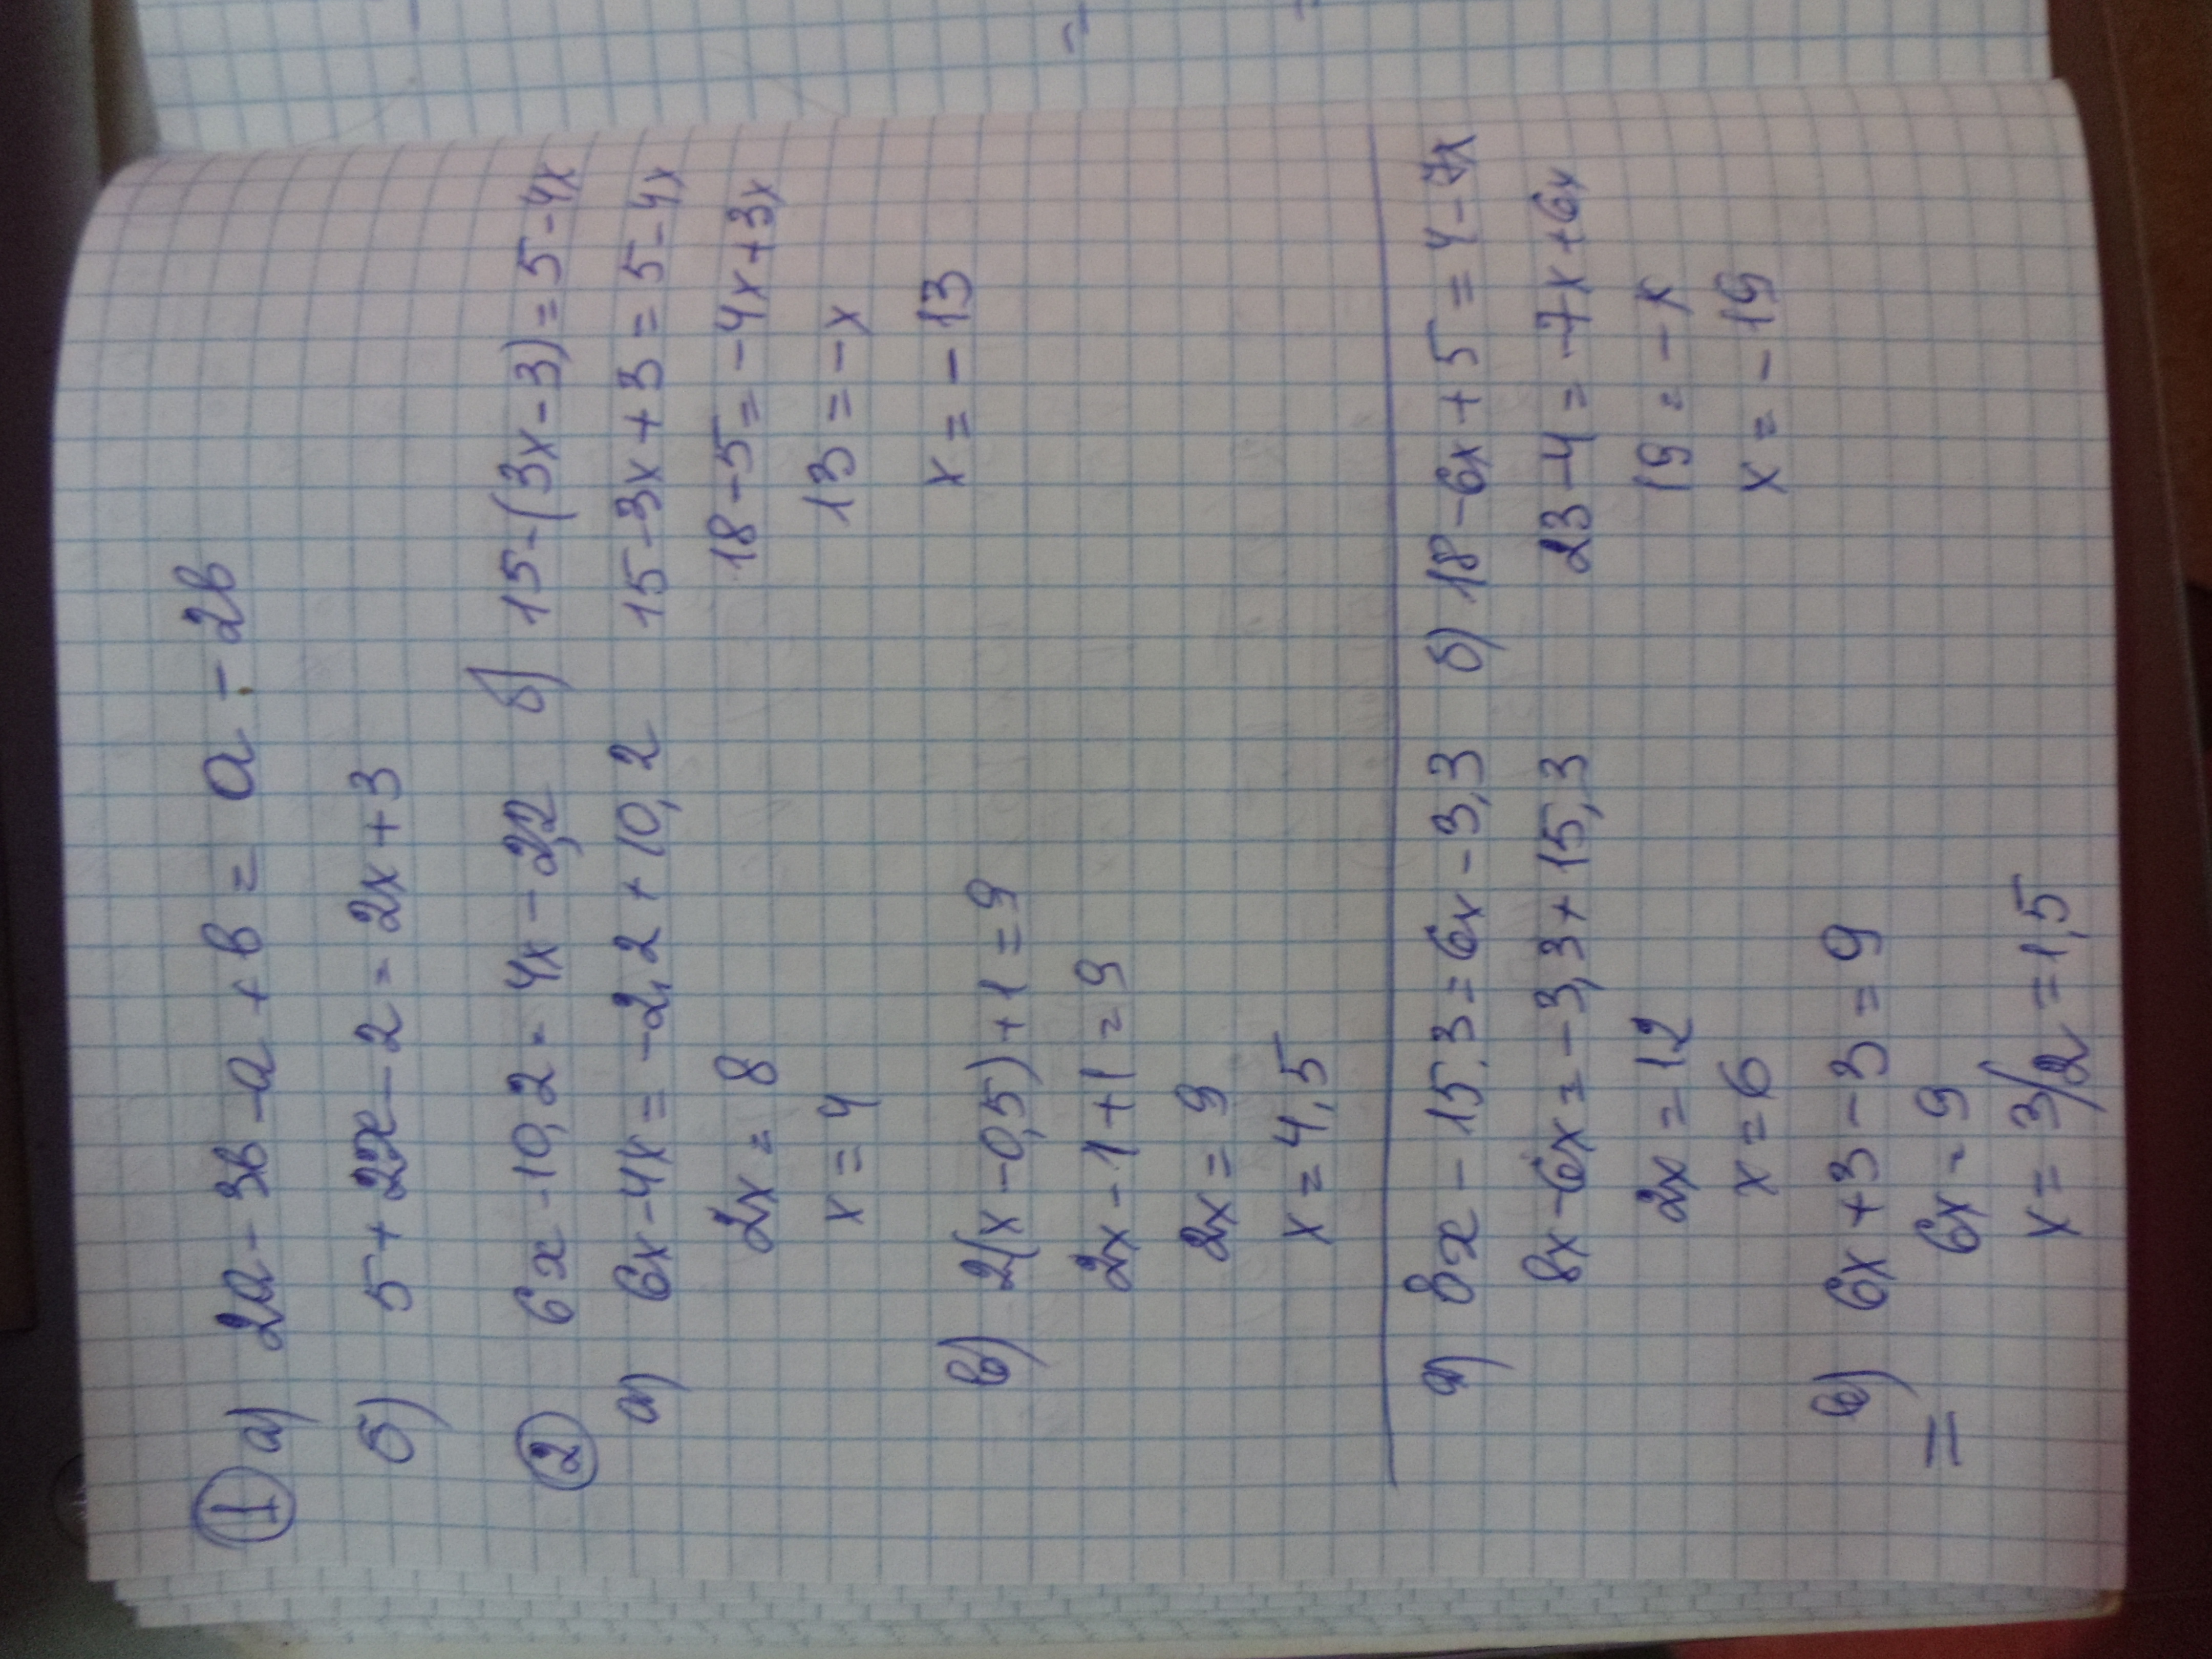 1 а) 2a - 3b - a + b = a - 2b
б) 5 + 2x - 2 = 2x + 3
2 6x - 10,2 = 4x - 2,2
а) 6x - 4x = -2,2 + 10,2
2x = 8
x = 4
б) 15 - (3x - 3) = 5 - 4x
15 - 3x + 3 = 5 - 4x
18 - 5 = -4x + 3x
13 = -x
x = -13
в) 2(x - 0,5) + 1 = 9
2x - 1 + 1 = 9
2x = 9
x = 4,5
а) 8x - 15,3 = 6x - 3,3
8x - 6x = -3,3 + 15,3
2x = 12
x = 6
б) 18 - 6x + 5 = 4 - 7x
23 - 4 = -7x + 6x
19 = -x
x = -19
в) 6x + 3 - 3 = 9
6x = 9
x = 3/2 = 1,5